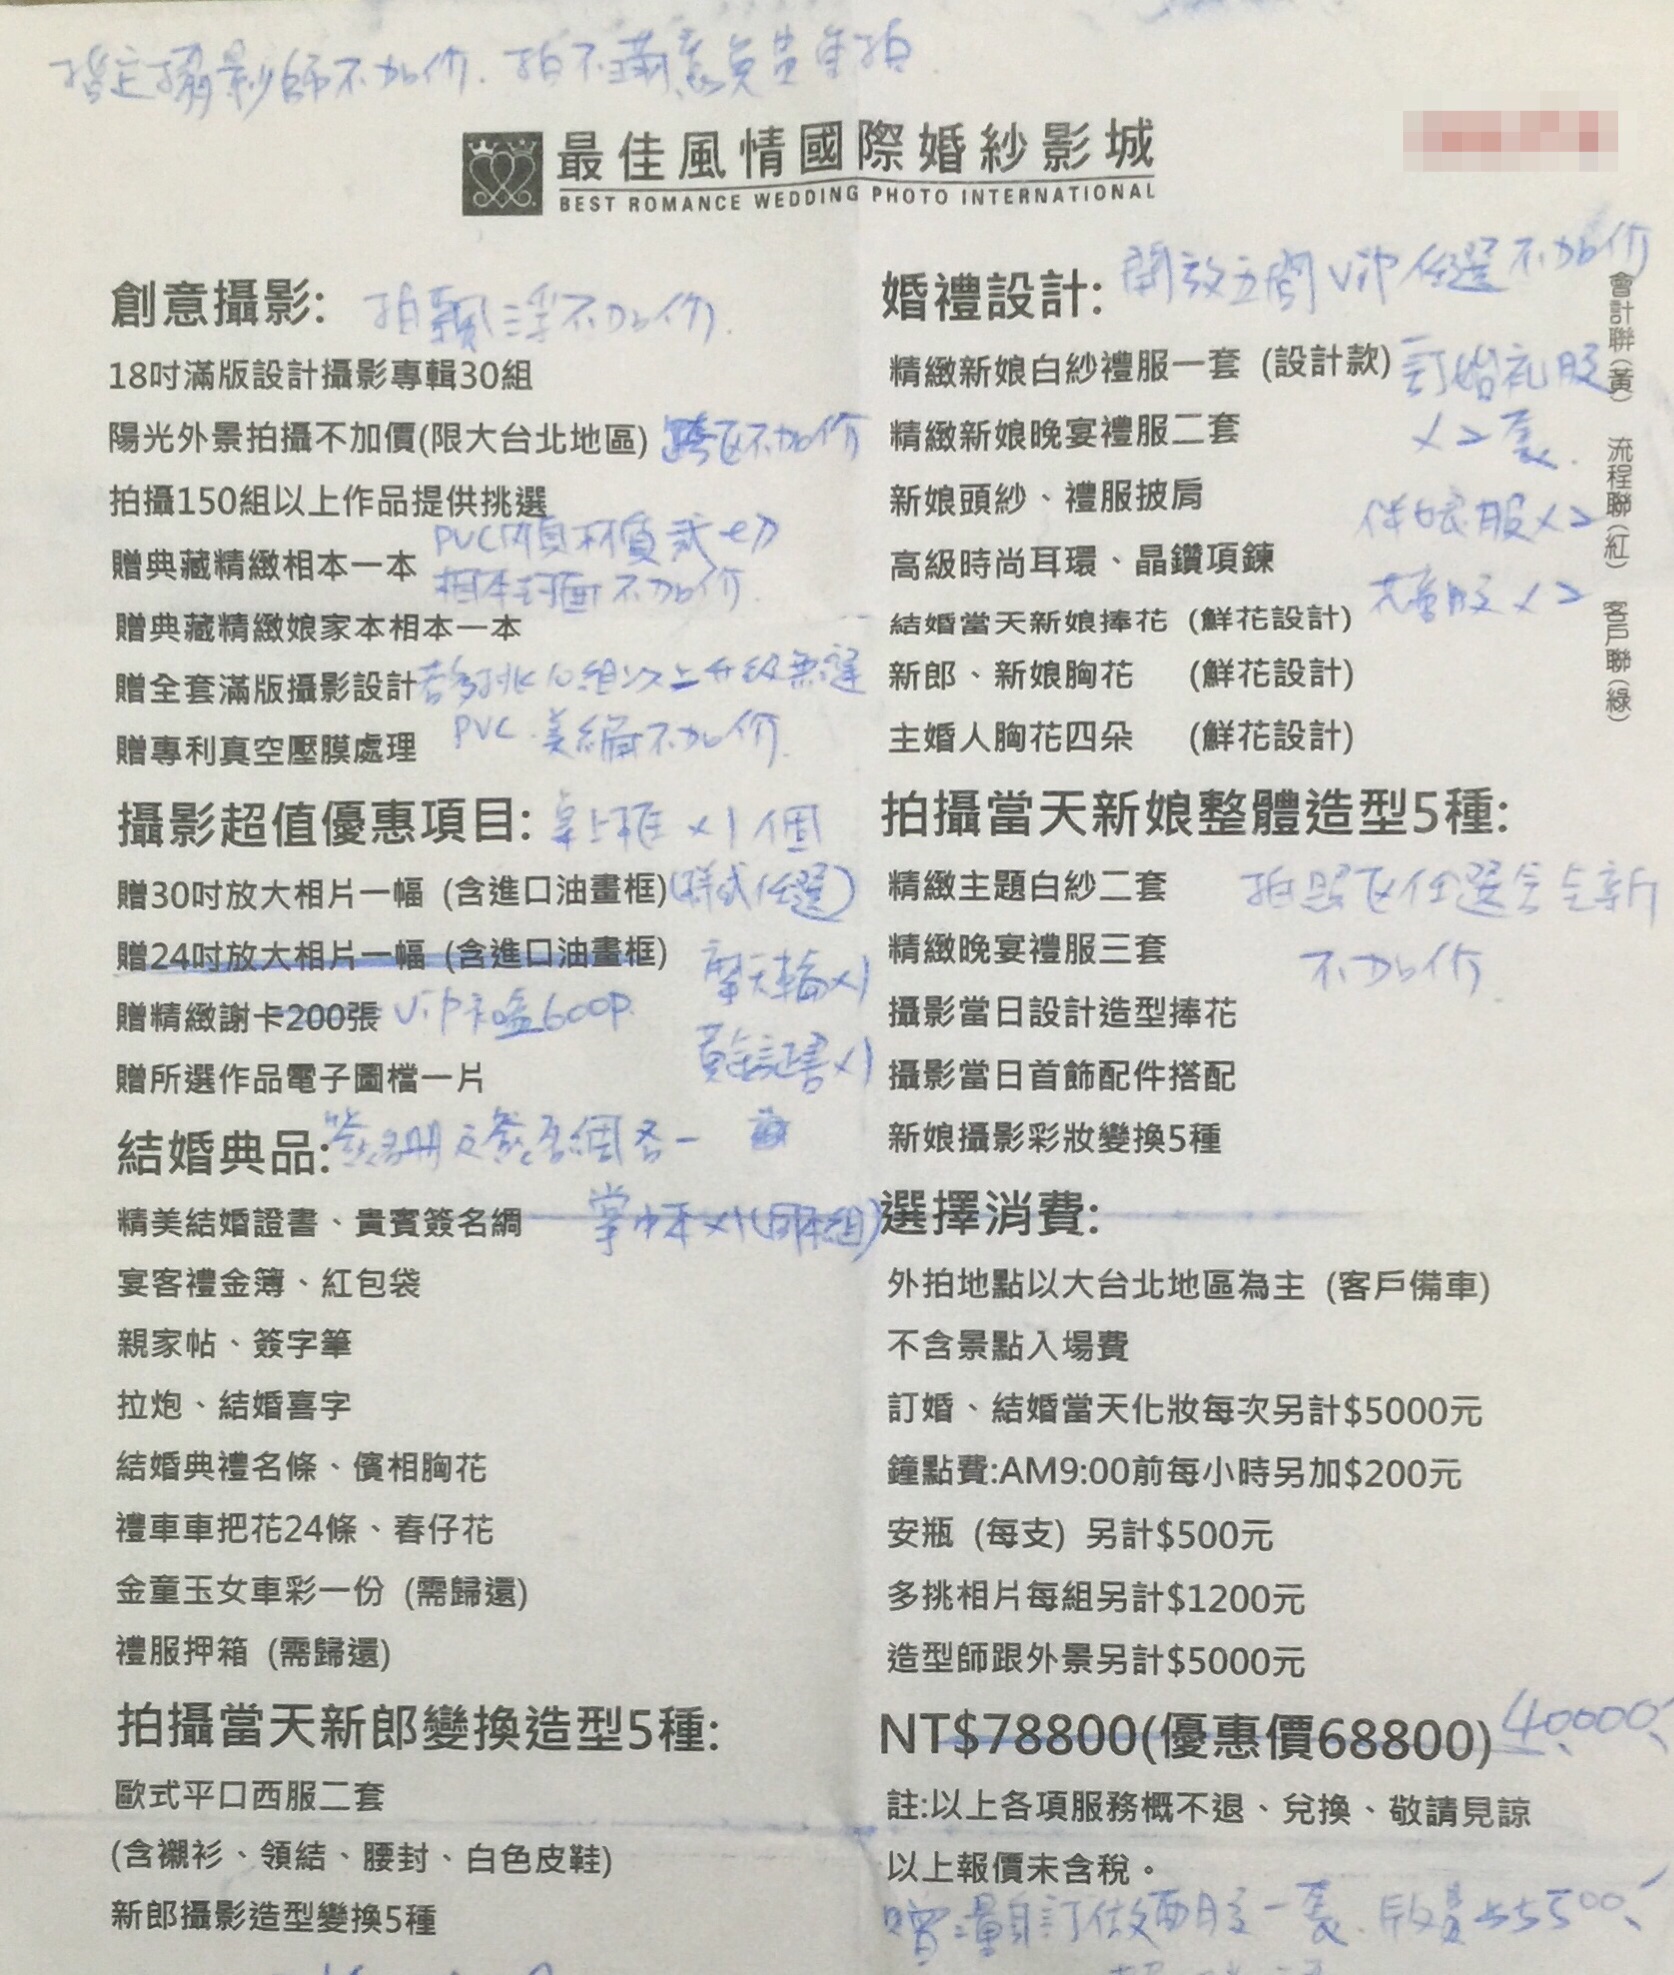 指定攝影師不加价. 拍不滿意負責重拍
最佳風情國際婚紗影城
BEST ROMANCE WEDDING PHOTO INTERNATIONAL
創意攝影: 拍飄浮不加价.
18吋滿版設計攝影專輯30組
陽光外景拍攝不加價(限大台北地區) 跨区不加价
拍攝150組以上作品提供挑選
PVC內頁材質或一切
贈典藏精緻相本一本
相本封面不加价.
贈典藏精緻娘家本相本一本
贈全套滿版攝影設計 若多挑10組以上升級無縫
贈專利真空壓膜處理 PVC.美編不加价.
攝影超值優惠項目: 桌上框x1個
贈30吋放大相片一幅 (含進口油畫框) (样式任選)
贈24吋放大相片一幅 (含進口油畫框) 摩天輪x1
贈精緻謝卡200張 VIP卡盒600P.
黃金証書x1
贈所選作品電子圖檔一片
結婚典品: 簽名冊及簽名綢各一
精美結婚證書、貴賓簽名綢 掌中本x1
宴客禮金簿、紅包袋
親家帖、簽字筆
拉炮、結婚喜字
結婚典禮名條、儐相胸花
禮車車把花24條、春仔花
金童玉女車彩一份 (需歸還)
禮服押箱 (需歸還)
拍攝當天新郎變換造型5種:
歐式平口西服二套
(含襯衫、領結、腰封、白色皮鞋)
新郎攝影造型變換5種
婚禮設計: 開放五間VIP任選不加价
精緻新娘白紗禮服一套 (設計款) 訂婚礼服
精緻新娘晚宴禮服二套 x2套.
新娘頭紗、禮服披肩 伴娘服x2
高級時尚耳環、晶鑽項鍊
花童服x2
結婚當天新娘捧花 (鮮花設計)
新郎、新娘胸花 (鮮花設計)
主婚人胸花四朵 (鮮花設計)
拍攝當天新娘整體造型5種:
精緻主題白紗二套 拍照区任選含全新
精緻晚宴禮服三套 不加价.
攝影當日設計造型捧花
攝影當日首飾配件搭配
新娘攝影彩妝變換5種
選擇消費:
外拍地點以大台北地區為主 (客戶備車)
不含景點入場費
訂婚、結婚當天化妝每次另計$5000元
鐘點費:AM9:00前每小時另加$200元
安瓶 (每支) 另計$500元
多挑相片每組另計$1200元
造型師跟外景另計$5000元
NT$78800(優惠價68800) 40000
註:以上各項服務概不退、兌換、敬請見諒
以上報價未含稅。
贈量身訂做西服一套.
會計聯(黃) 流程聯(紅) 客戶聯(綠)